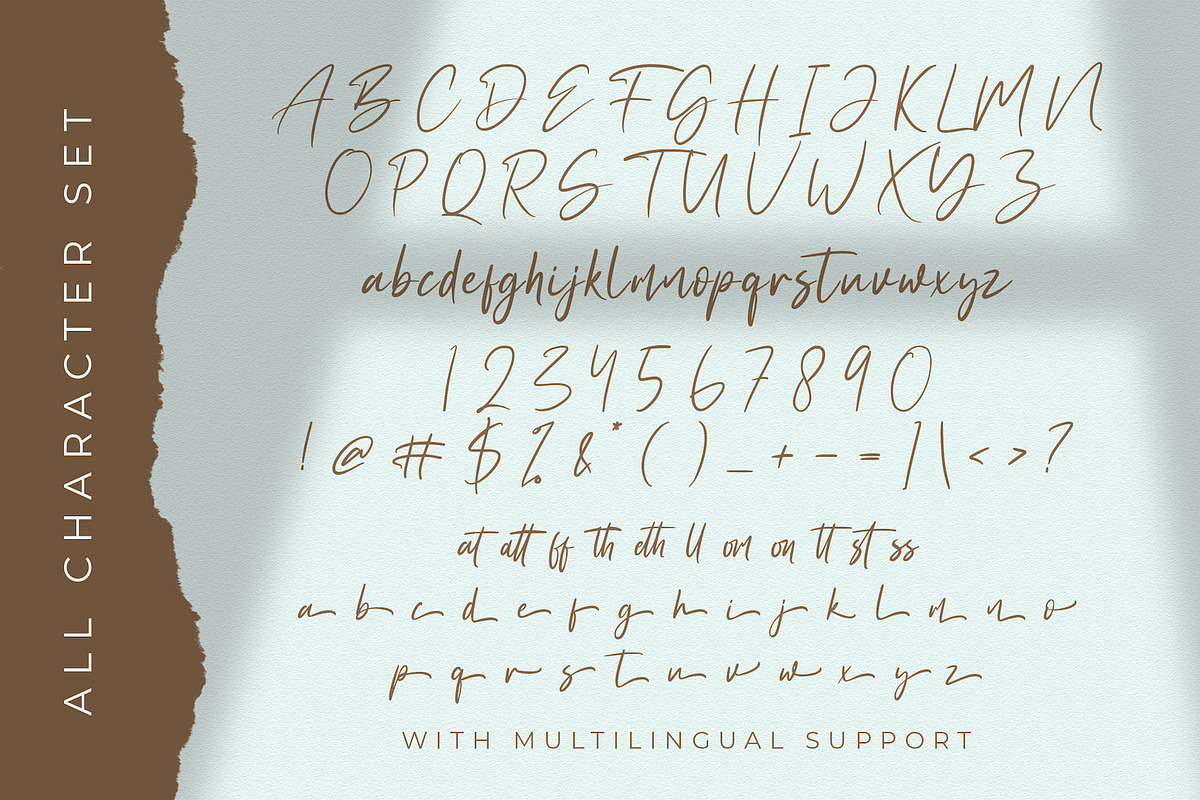 ALL CHARACTER SET
A B C D E F G H I J K L M N
O P Q R S T U V W X Y Z
a b c d e f g h i j k l m n o p q r s t u v w x y z
1 2 3 4 5 6 7 8 9 0
! @ # $ % & * ( ) _ + - = / \ < > ?
at att ff th eth ll om on tt st ss
a b c d e f g h i j k l m n o
p q r s t u v w x y z
WITH MULTILINGUAL SUPPORT